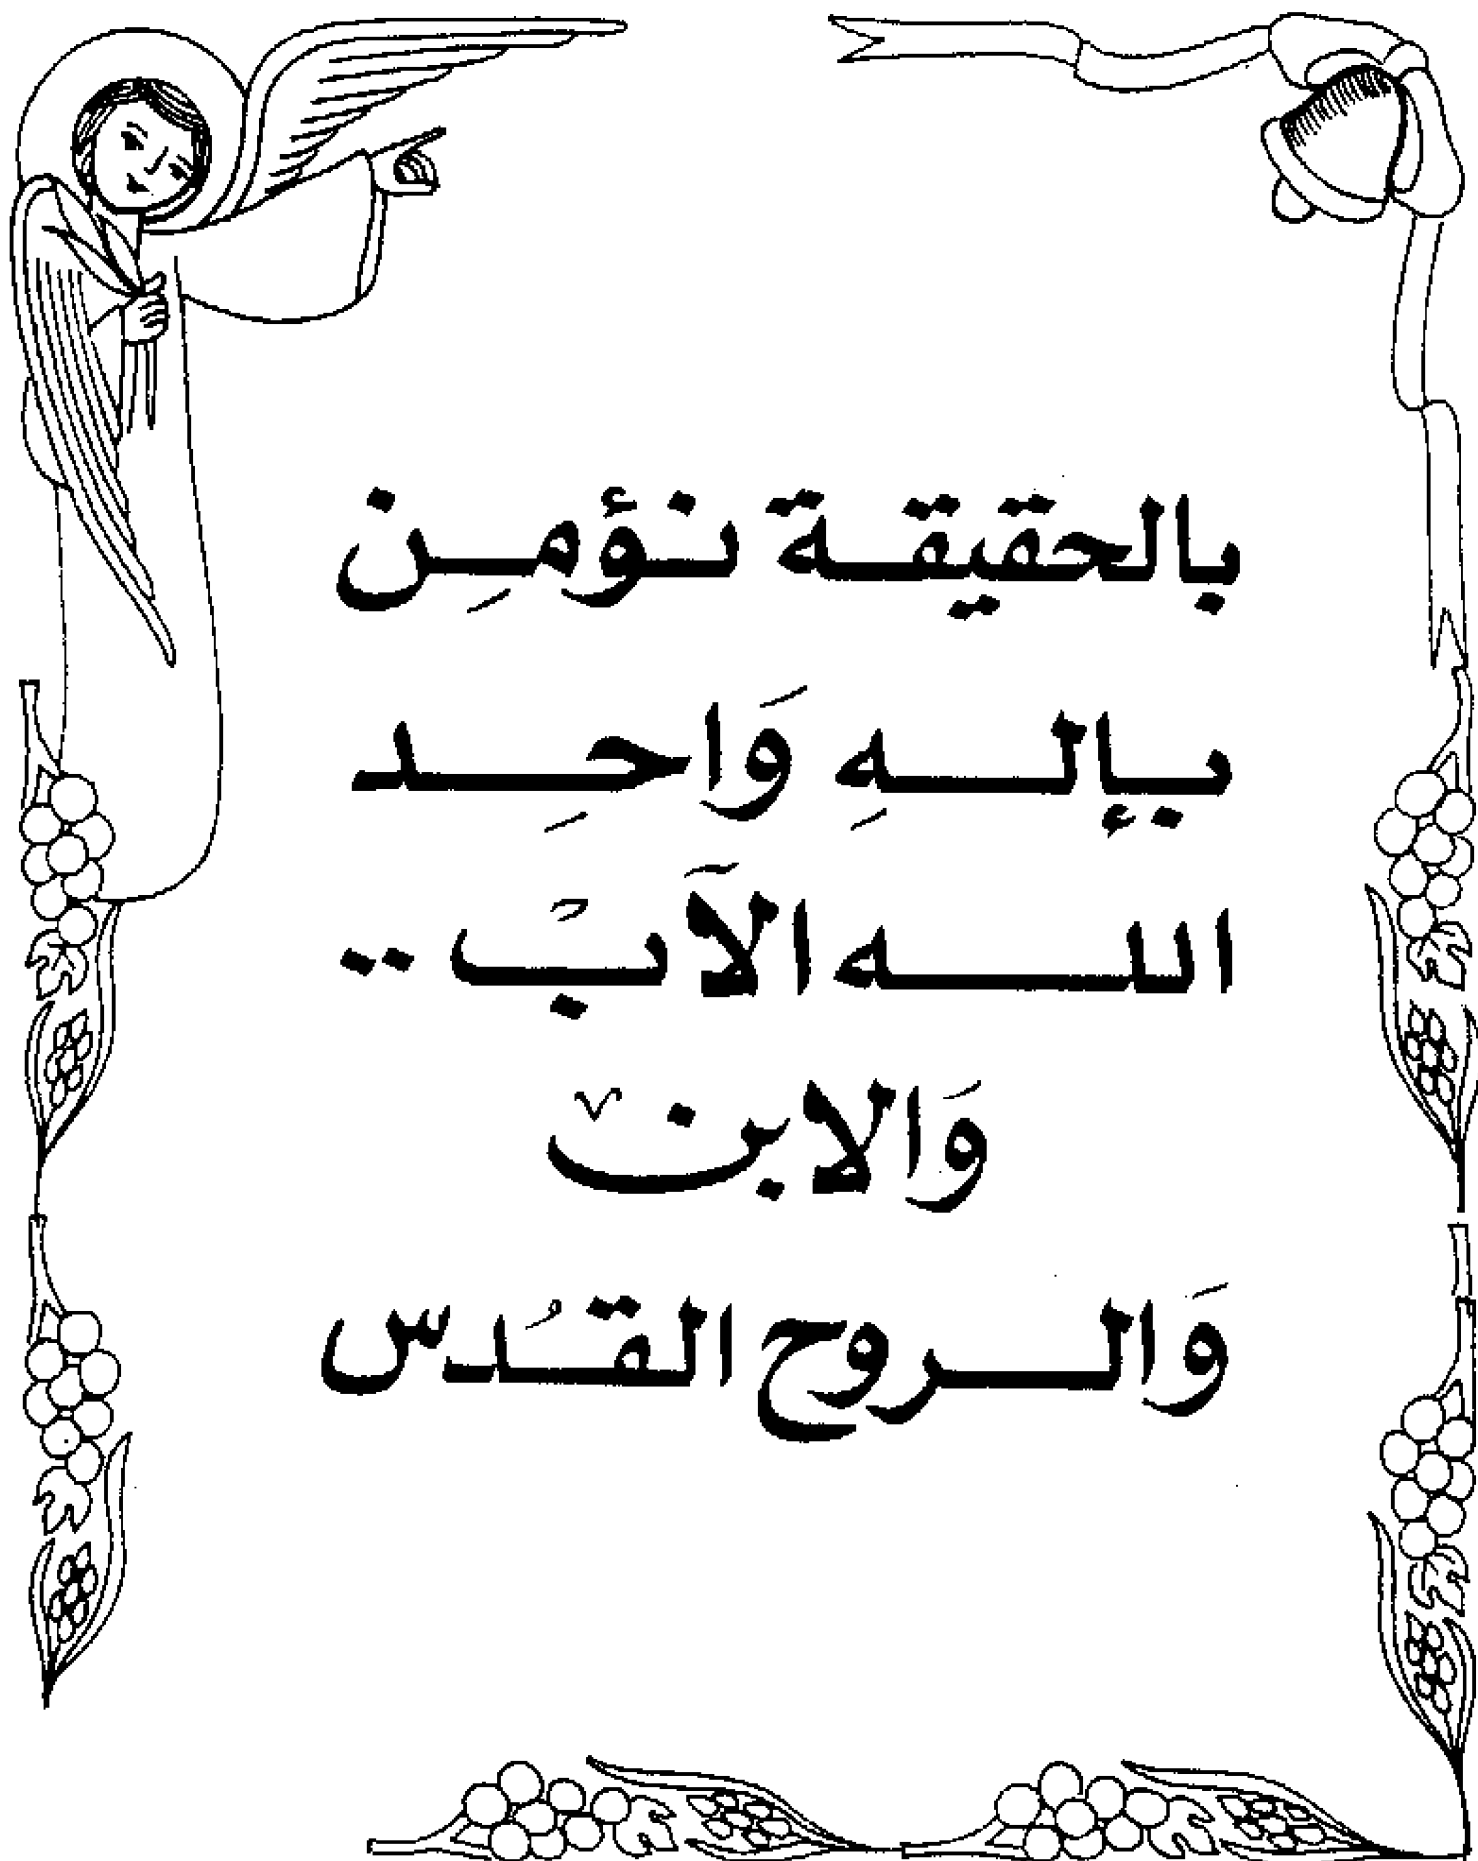 بالحقيقة نؤمِن
بإلهِ وَاحِد
الله الآب ..
وَالابن
وَالروح القدُس